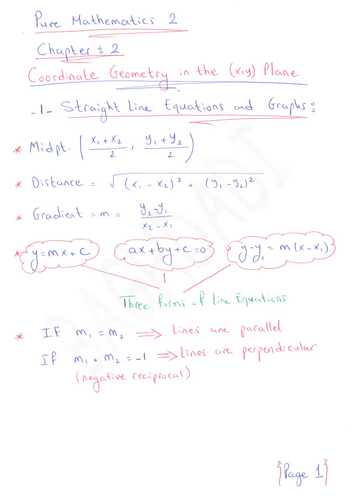 Pure Mathematics 2
Chapter : 2
Coordinate Geometry in the (x,y) Plane
-1- Straight Line Equations and Graphs:
* Midpt. [ (x₁ + x₂)/2 , (y₁ + y₂)/2 )
* Distance = √((x₁ - x₂)² + (y₁ - y₂)²)
* Gradient = m = (y₂ - y₁)/(x₂ - x₁)
y = mx + c   ax + by + c = 0   y - y₁ = m(x - x₁)
Three forms of Line Equations
* IF m₁ = m₂ ⟹ Lines are parallel
If m₁ · m₂ = -1 ⟹ Lines are perpendicular
(negative reciprocal)
{Page 1}